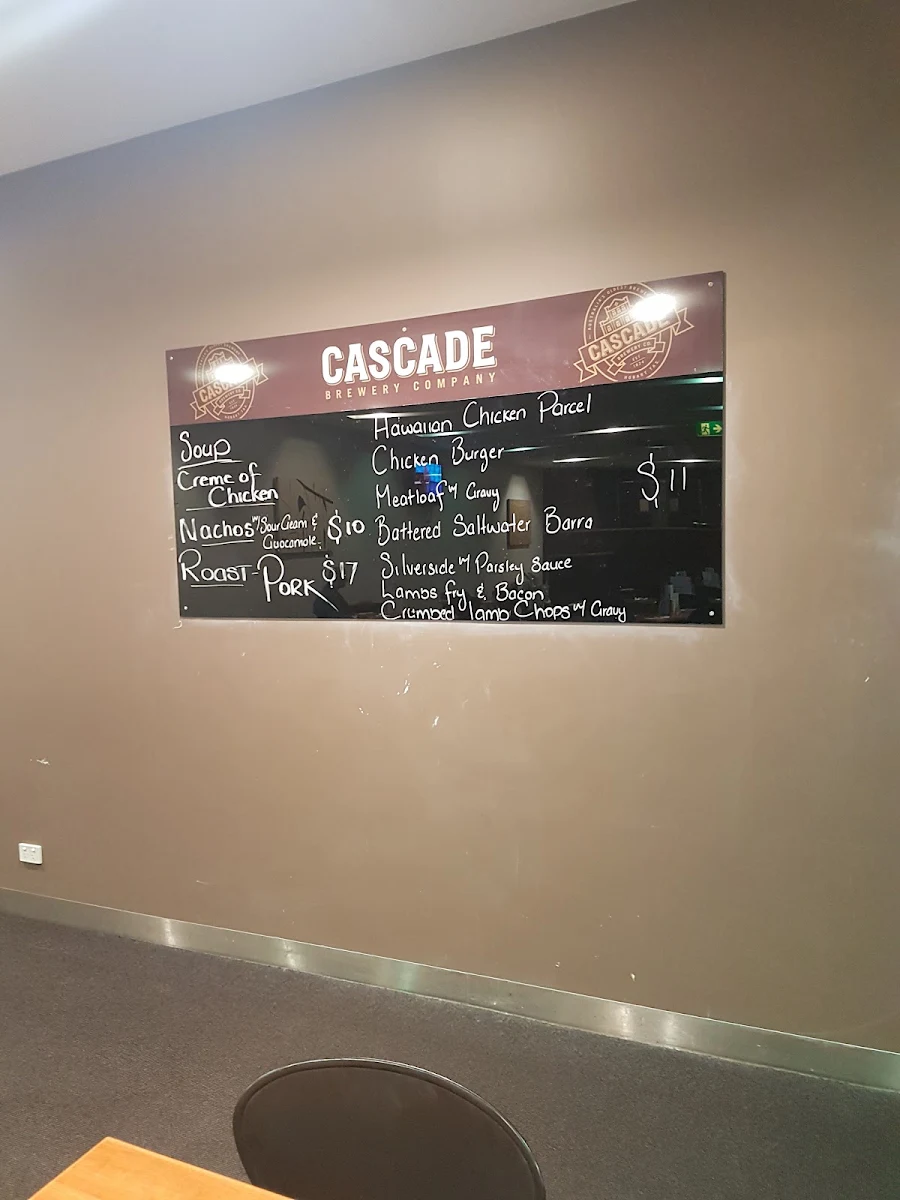 CASCADE
BREWERY COMPANY
CASCADE
BREWERY CO.
Soup
Creme of
Chicken
Nachos w/ Sour Cream &
Guacamole. $10
Roast - Pork $17
Hawaiian Chicken Parcel
Chicken Burger
Meatloaf w/ Gravy
Battered Saltwater Barra
Silverside w/ Parsley Sauce
Lambs fry & Bacon
Crumbed lamb Chops w/ Gravy
$11